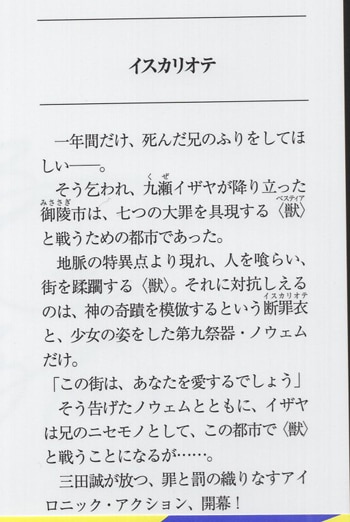 イスカリオテ
一年間だけ、死んだ兄のふりをしてほ
しい――。
くぜ
そう乞われ、九瀬イザヤが降り立った
みささぎ ベスティア
御陵市は、七つの大罪を具現する〈獣〉
と戦うための都市であった。
地脈の特異点より現れ、人を喰らい、
街を蹂躙する〈獣〉。それに対抗しえる
イスカリオテ
のは、神の奇蹟を模倣するという断罪衣
と、少女の姿をした第九祭器・ノウェム
だけ。
「この街は、あなたを愛するでしょう」
そう告げたノウェムとともに、イザヤ
は兄のニセモノとして、この都市で〈獣〉
と戦うことになるが……。
三田誠が放つ、罪と罰の織りなすアイ
ロニック・アクション、開幕！